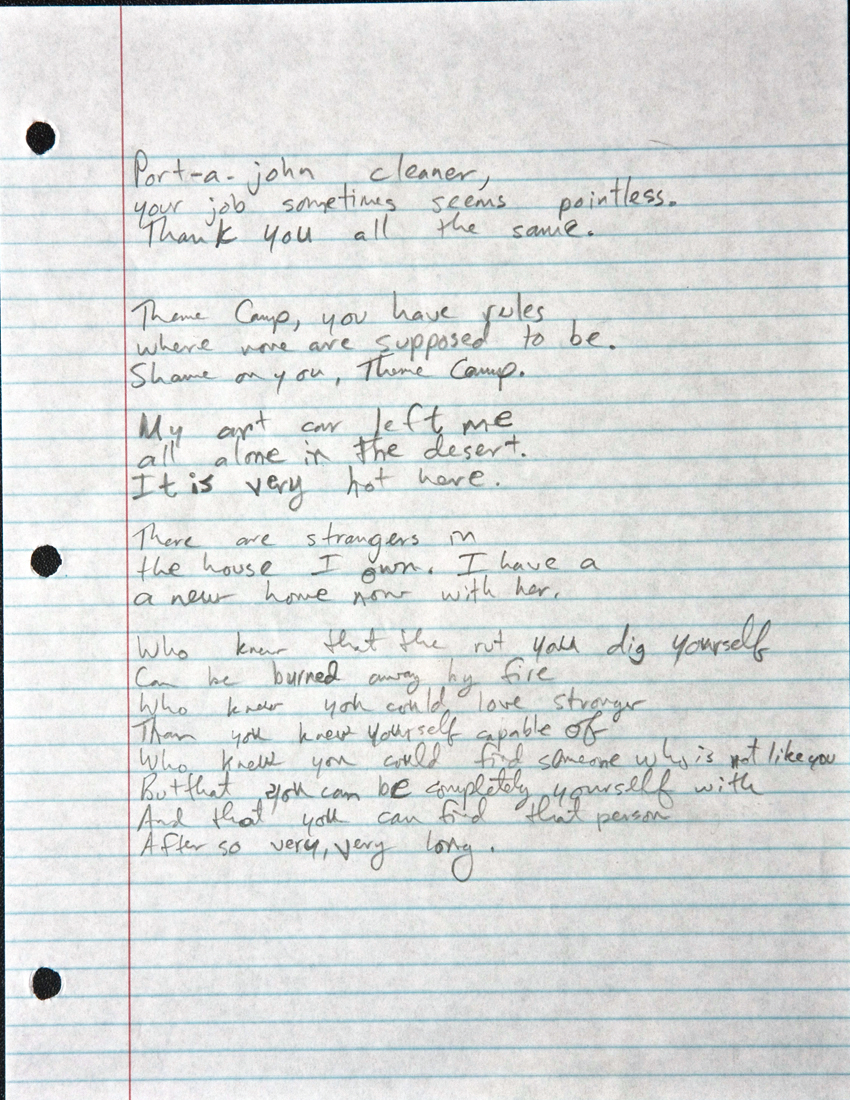 Port-a-john cleaner,
your job sometimes seems pointless.
Thank you all the same.
Theme Camp, you have rules
where none are supposed to be.
Shame on you, Theme Camp.
My art car left me
all alone in the desert.
It is very hot here.
There are strangers in
the house I own. I have a
a new home now with her.
Who knew that the rut you dig yourself
Can be burned away by fire
Who knew you could love stronger
Than you knew yourself capable of
Who knew you could find someone who is not like you
But that you can be completely yourself with
And that you can find that person
After so very, very long.